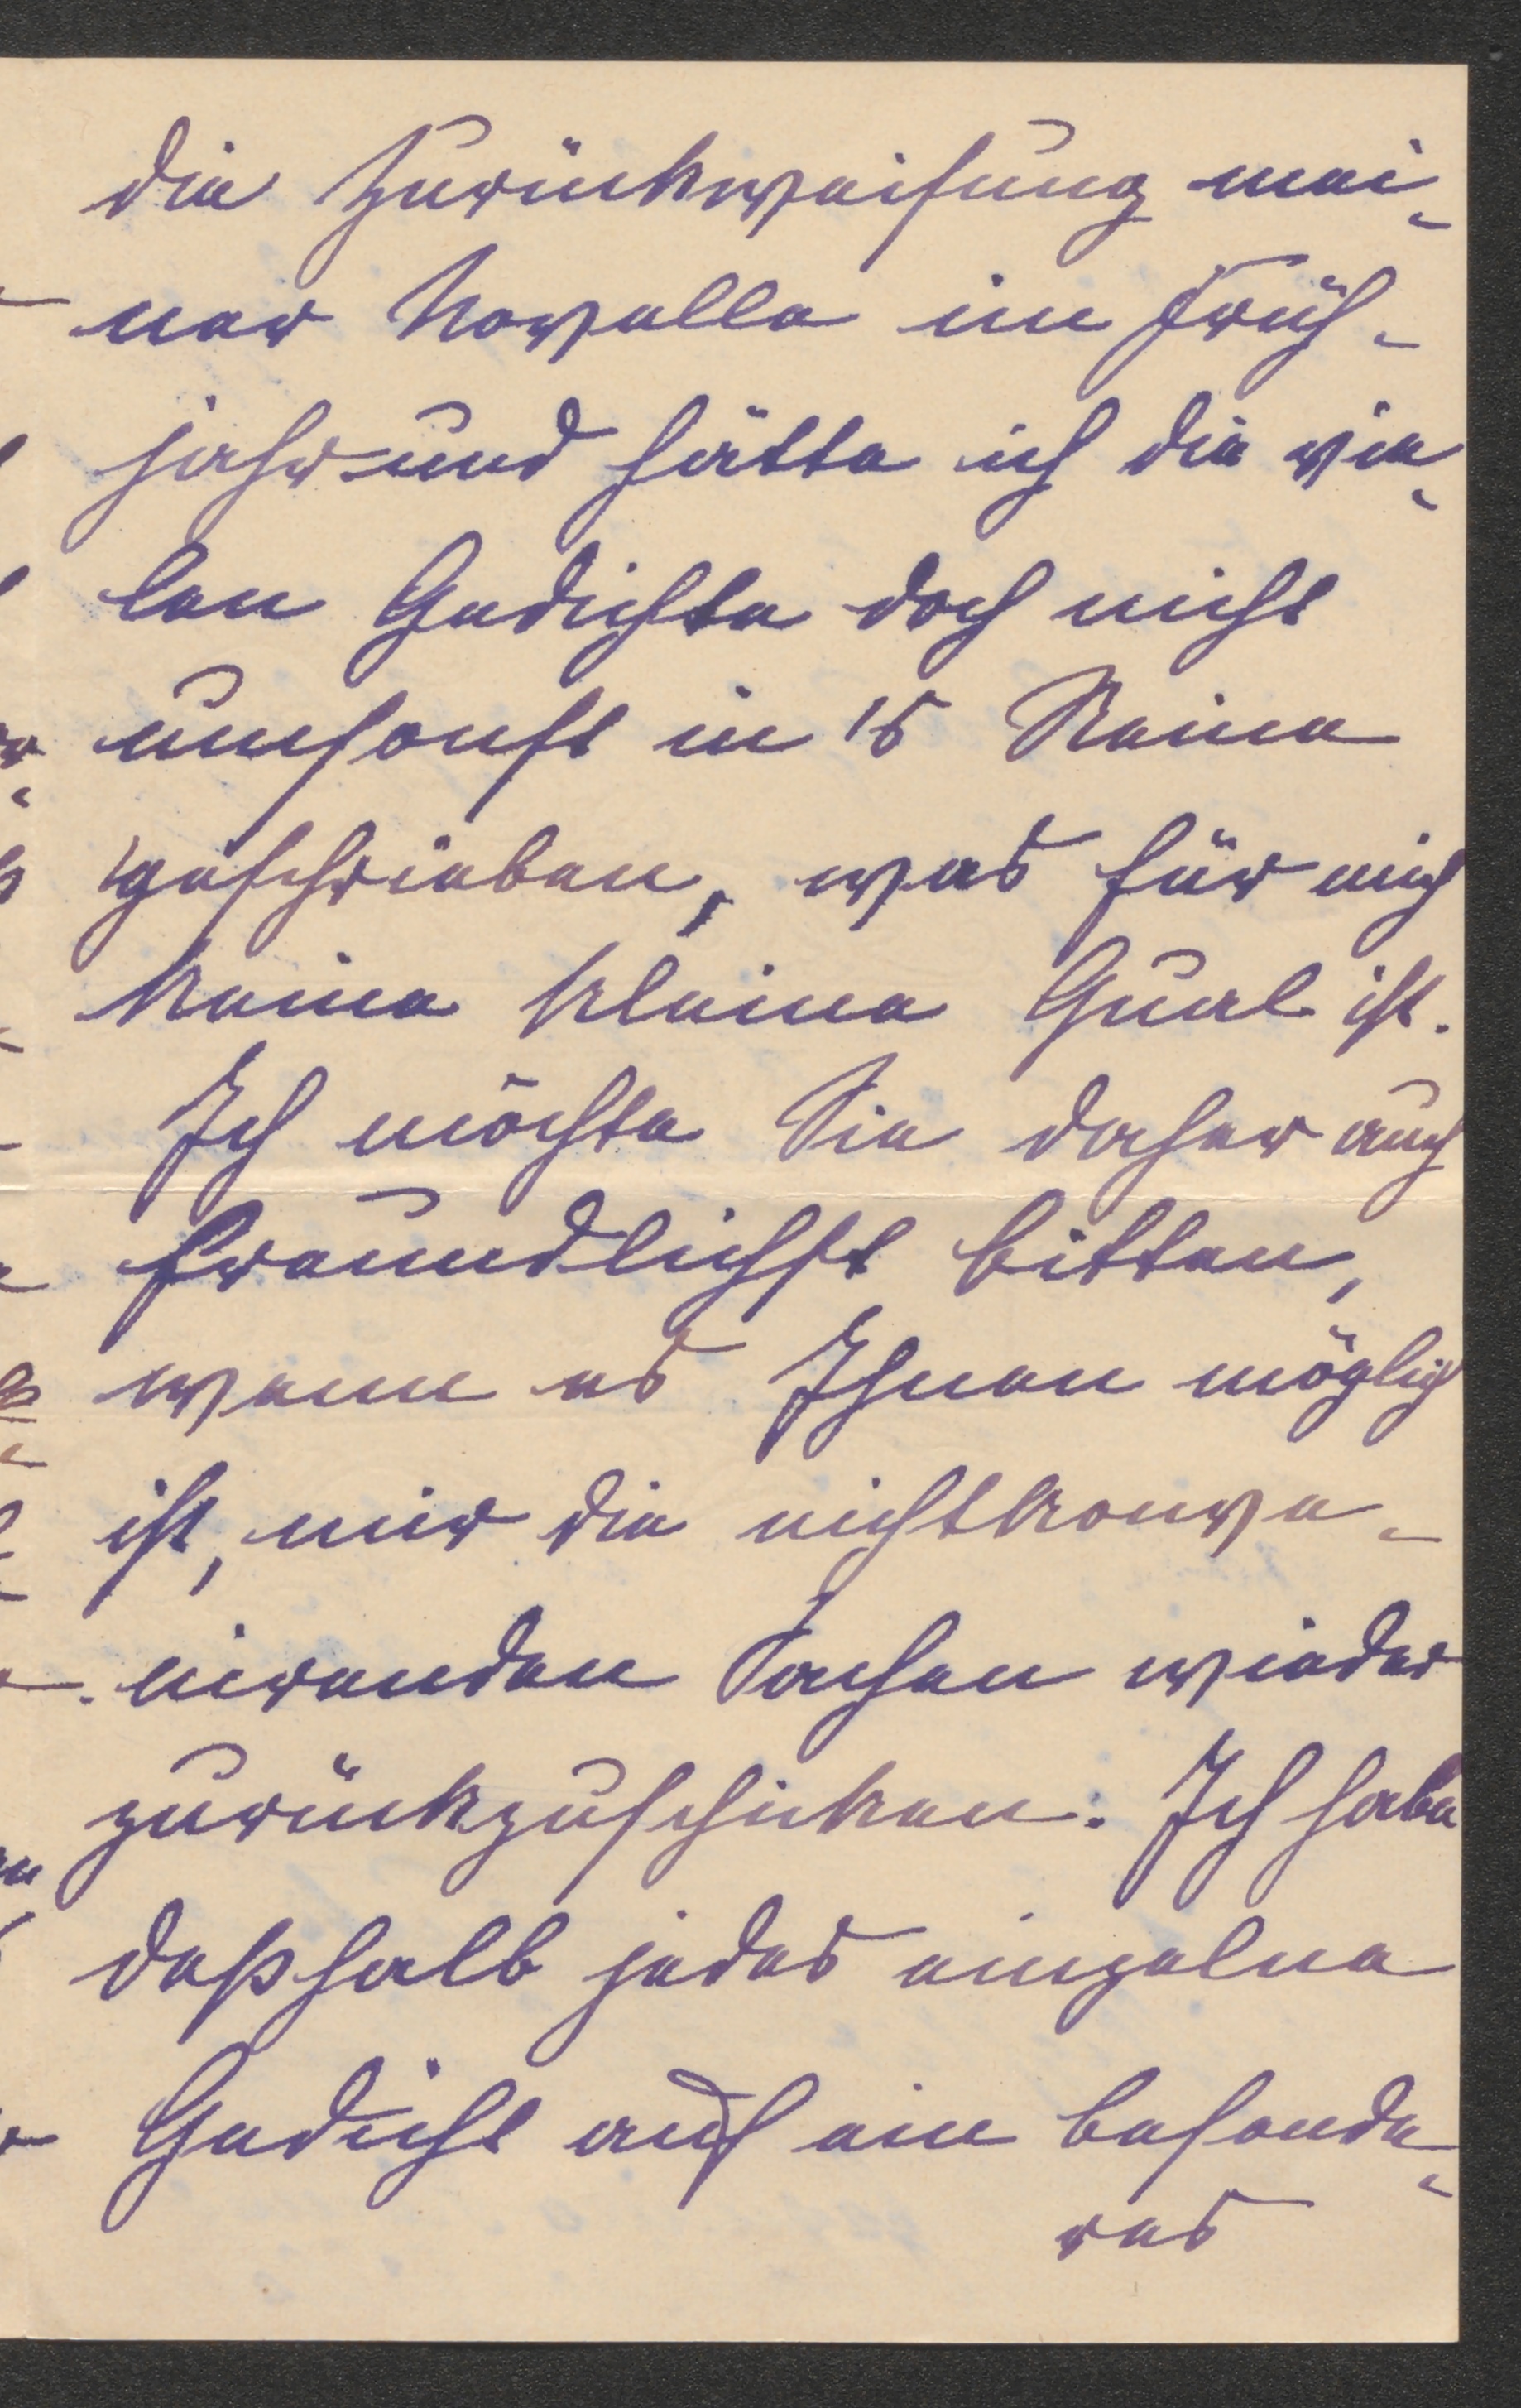 die Zurückweisung mei-
ner Novelle im Früh-
jahr und hätte ich die vie-
len Gedichte doch nicht
umsonst in's Reine
geschrieben, was für mich
keine kleine Qual ist.
Ich möchte Sie daher auch
freundlichst bitten,
wenn es Ihnen möglich
ist, mir die nichtkonve-
nirenden Sachen wieder
zurückzuschicken. Ich habe
deßhalb jedes einzelne
Gedicht auf ein besonde-
res